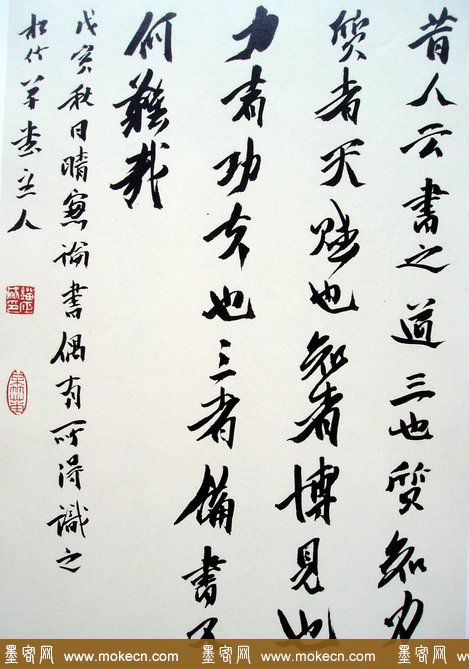 昔人云書之道三也質知力
質者天賦也知者博見也
力者功夫也三者備書了
何難哉
戊寅秋日晴窗論書偶有所得識之
松竹草堂主人
墨客网 www.mokecn.com 墨客网 www.mokecn.com 墨客网 w